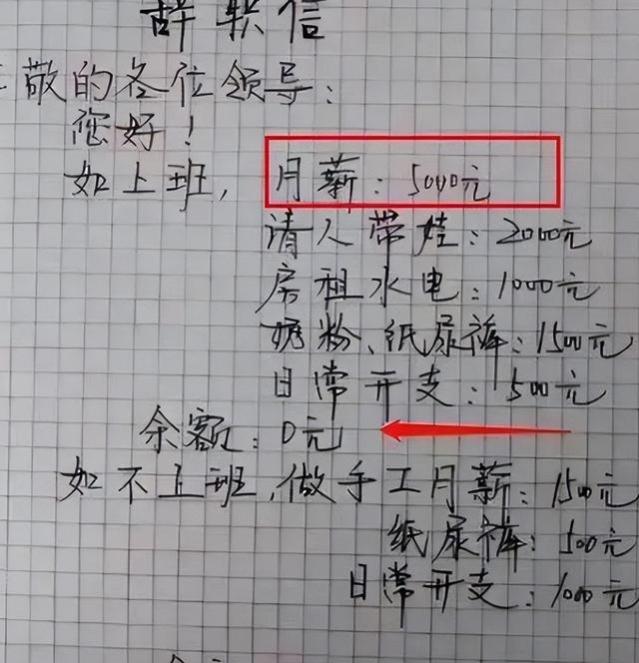 辞职信
敬的各位领导：
您好！
如上班，月薪：5000元
请人带娃：2000元
房租水电：1000元
奶粉、纸尿裤：1500元
日常开支：500元
余额：0元
如不上班，做手工月薪：1500元
纸尿裤：500元
日常开支：1000元